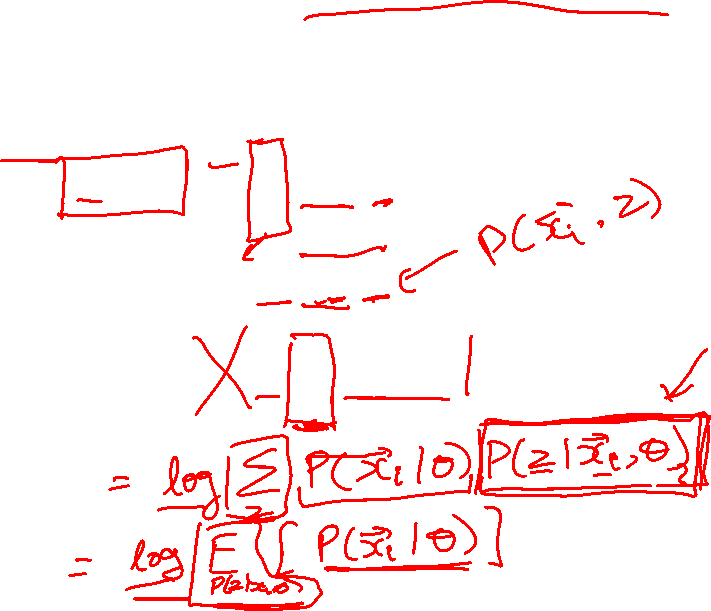 P(x⃗ᵢ, z)
= log [ Σ_z P(x⃗ᵢ | θ) P(z | x⃗ᵢ, θ) ]
= log [ E_{P(z|xᵢ,θ)} [ P(x⃗ᵢ | θ) ]